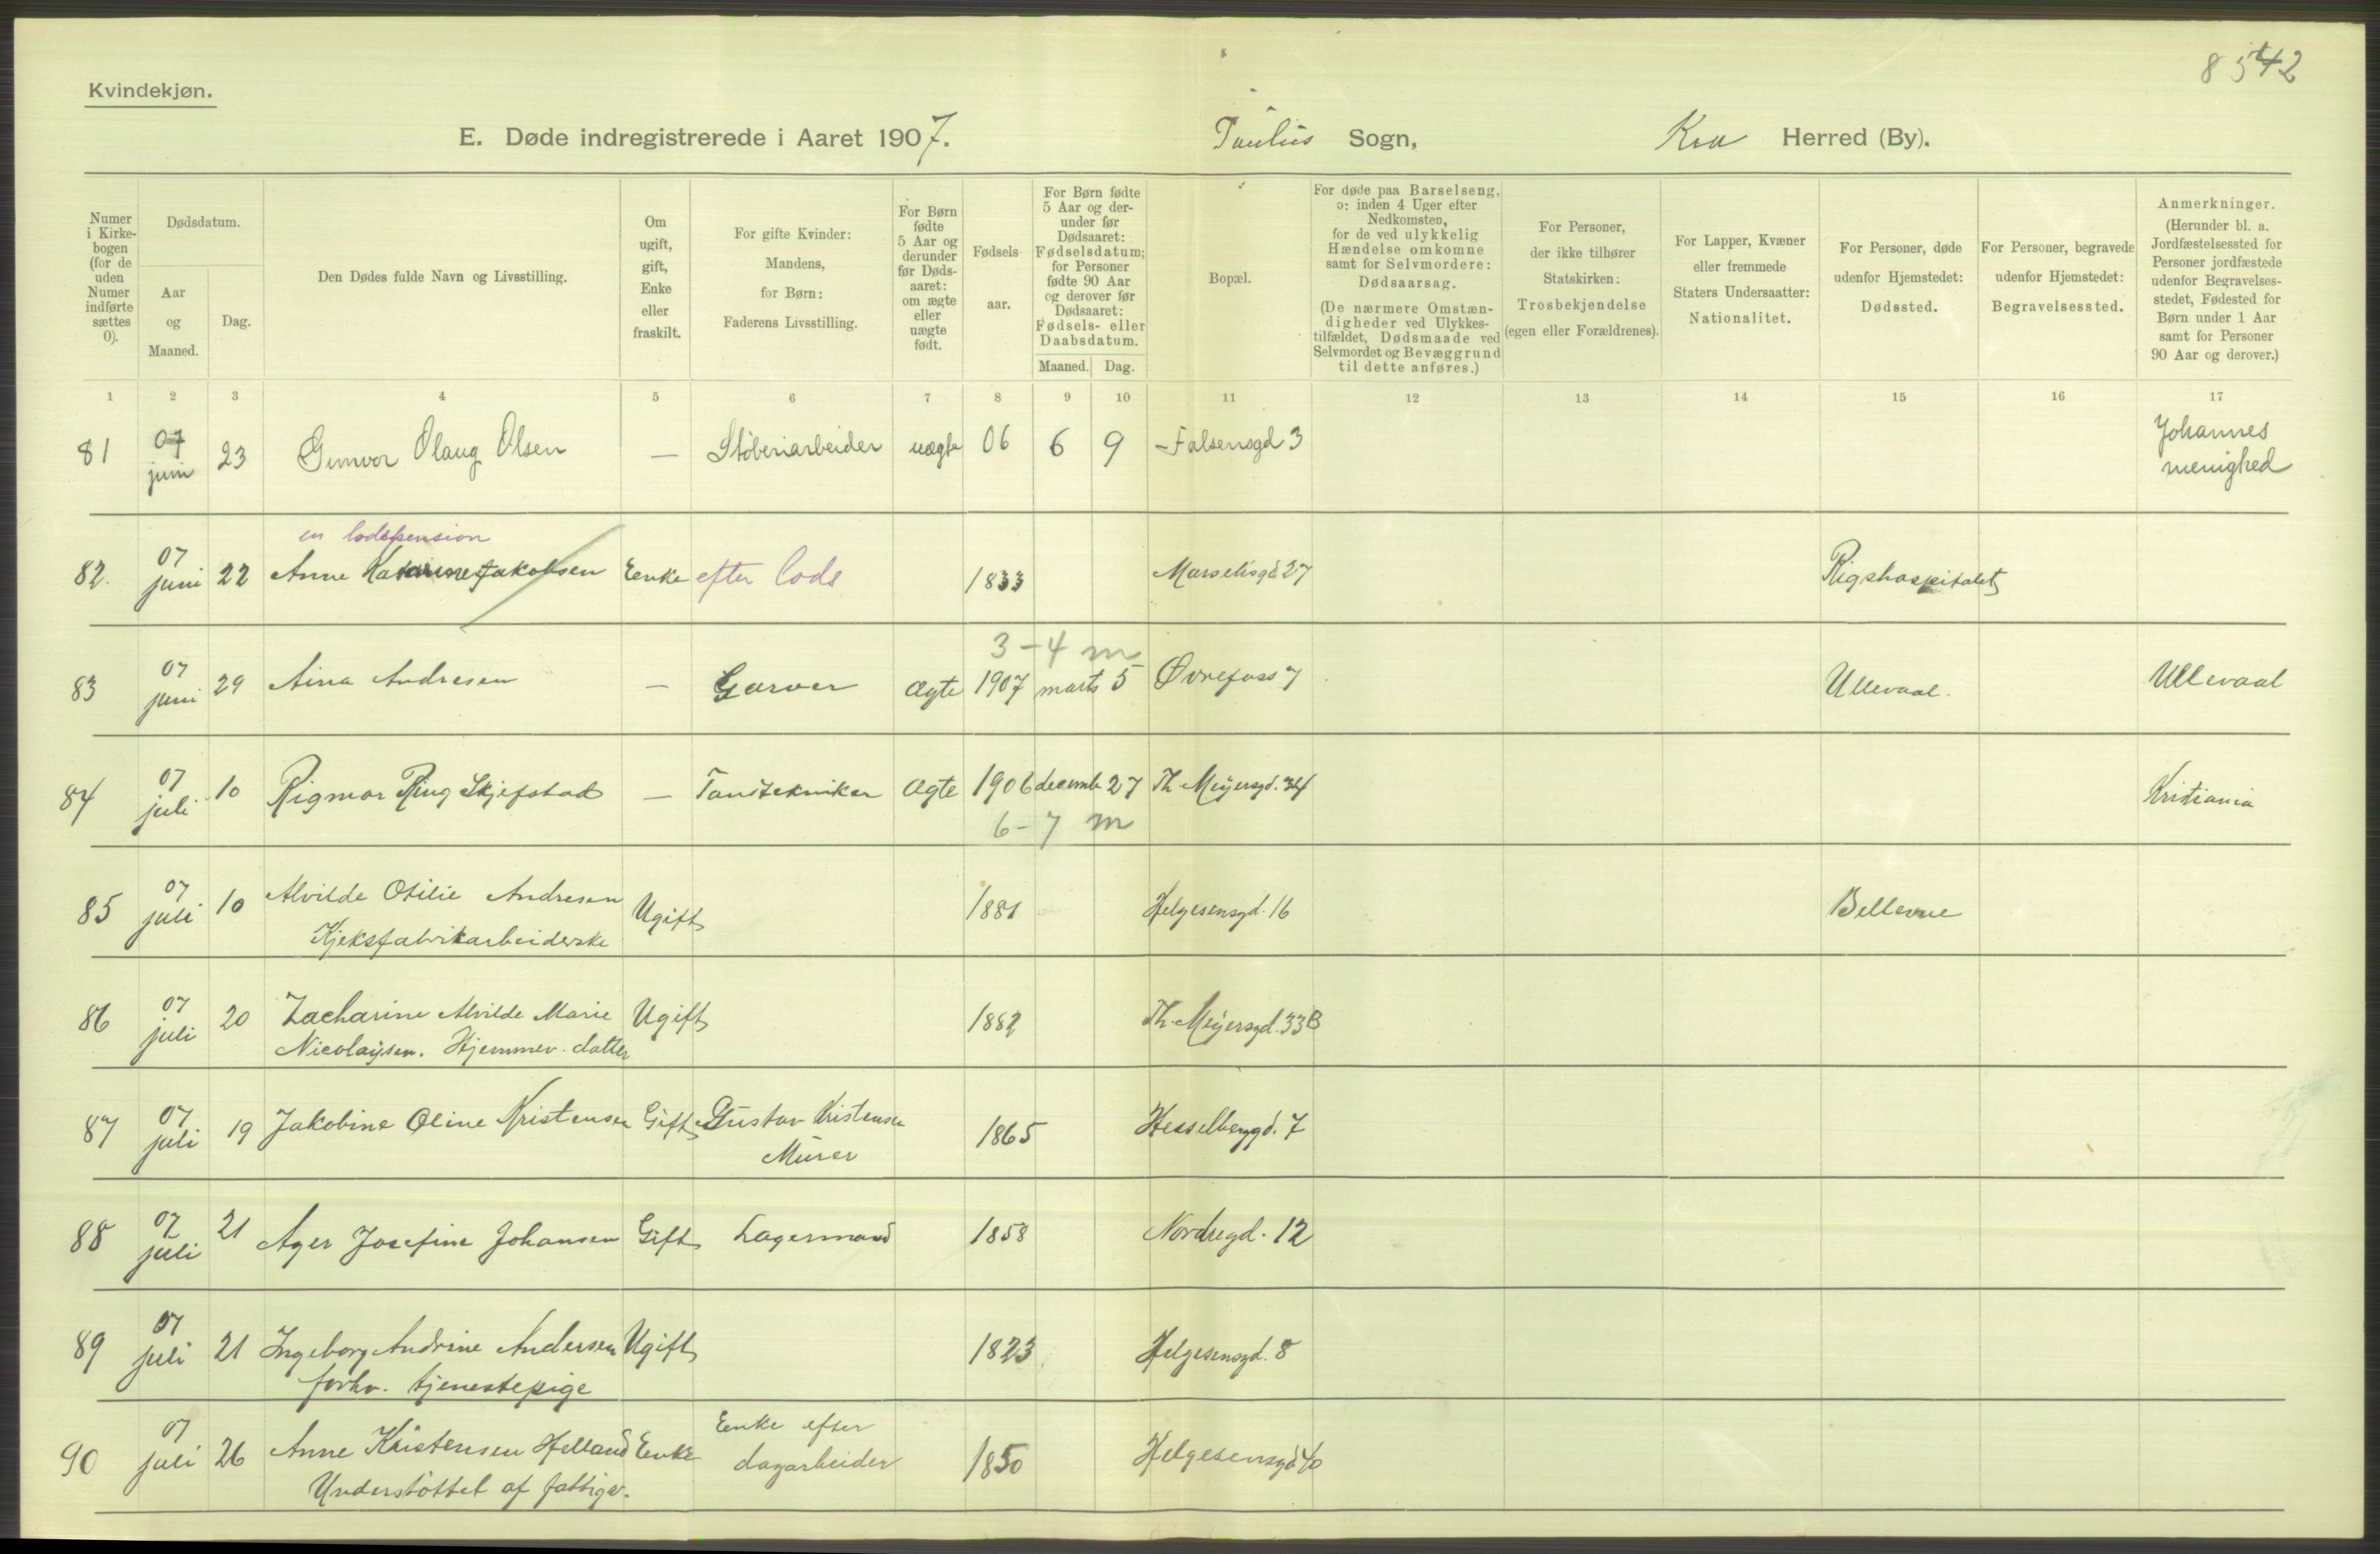 Kvindekjøn.
E. Døde indregistrerede i Aaret 1907. Paulus Sogn, Kra Herred (By).
Numer i Kirkebogen (for de uden Numer indførte sættes 0).
Dødsdatum.
Aar og Maaned.
Dag.
Den Dødes fulde Navn og Livsstilling.
Om ugift, gift, Enke eller fraskilt.
For gifte Kvinder: Mandens, for Børn: Faderens Livsstilling.
For Børn fødte 5 Aar og derunder før Dødsaaret: om ægte eller uægte født.
Fødselsaar.
For Børn fødte 5 Aar og derunder før Dødsaaret: Fødselsdatum; for Personer fødte 90 Aar og derover før Dødsaaret: Fødsels- eller Daabsdatum.
Maaned. Dag.
Bopæl.
For døde paa Barselseng, ɔ: inden 4 Uger efter Nedkomsten, for de ved ulykkelig Hændelse omkomne samt for Selvmordere: Dødsaarsag.
(De nærmere Omstændigheder ved Ulykkestilfældet, Dødsmaade ved Selvmordet og Bevæggrund til dette anføres.)
For Personer, der ikke tilhører Statskirken: Trosbekjendelse (egen eller Forældrenes).
For Lapper, Kvæner eller fremmede Staters Undersaatter: Nationalitet.
For Personer, døde udenfor Hjemstedet: Dødssted.
For Personer, begravede udenfor Hjemstedet: Begravelsessted.
Anmerkninger.
(Herunder bl. a. Jordfæstelsessted for Personer jordfæstede udenfor Begravelsesstedet, Fødested for Børn under 1 Aar samt for Personer 90 Aar og derover.)
1 2 3 4 5 6 7 8 9 10 11 12 13 14 15 16 17
81 07 juni 23 Gunvor Olaug Olsen — Støberiarbeider uægte 06 6 9 Falsensgd 3 Johannes menighed
en lodspension
82. 07 juni 22 Anne Jakobsen Enke efter lods 1833 Marselisgd 27 Rigshospitalet
3-4 m
83 07 juni 29 Aina Andresen — Garver Ægte 1907 marts 5 Øvrefoss 7 Ullevaal. Ullevaal
84 07 juli 10 Rigmor Ring Skjefstad — Tandtekniker Ægte 1906 decemb 27 Th. Meyersgd. 34 Kristiania
6-7 m
85 07 juli 10 Alvilde Otilie Andresen Ugift 1881 Helgesensgd. 16 Bellevue
Kjeksfabrikarbeiderske
86 07 juli 20 Zacharine Alvilde Marie Ugift 1882 Th. Meyersgd. 33B
Nicolaysen. Hjemmev. datter
87 07 juli 19 Jakobine Oline Kristensen Gift Gustav Kristensen 1865 Hesselberggd. 7
Murer
88 07 juli 21 Ager Josefine Johansen Gift Lagermand 1858 Nordregd. 12
89 07 juli 21 Ingeborg Andrine Andersen Ugift 1823 Helgesensgd. 8
forhv. tjenestepige
90 07 juli 26 Anne Kristensen Helland Enke Enke efter 1850 Helgesensgd 40
dagarbeider
Understøttet af fattigv.